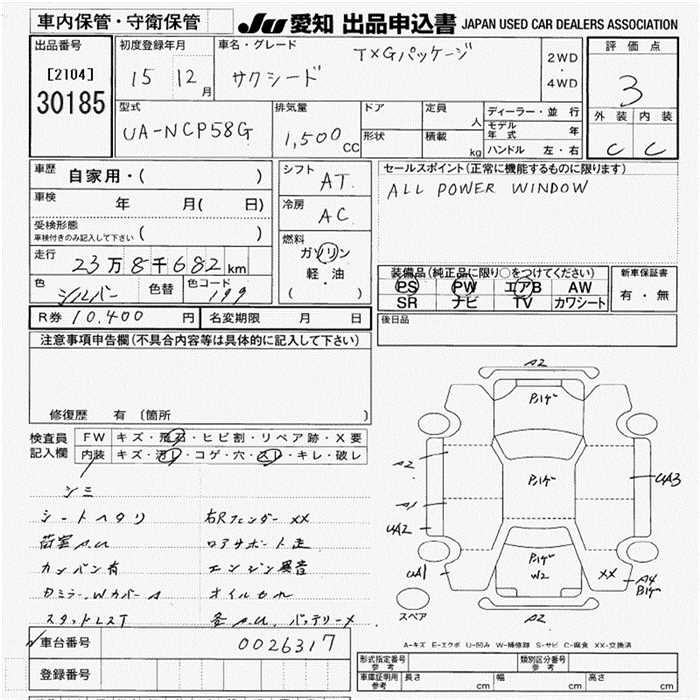 車内保管・守衛保管
JU 愛知 出品申込書 JAPAN USED CAR DEALERS ASSOCIATION
出品番号
[2104]
30185
初度登録年月
15 12月
車名・グレード
TXGパッケージ
サクシード
2WD
・
4WD
評価点
3
外装 内装
C C
型式
UA-NCP58G
排気量
1,500cc
ドア
形状
定員
人
積載
kg
ディーラー・並行
モデル年式 年
ハンドル 左・右
車歴
自家用・( )
車検
年 月( 日)
受検形態
車検付きのみ記入して下さい ( )
走行
23万8千682km
色
シルバー
色替
色コード
199
シフト
AT
冷房
AC
燃料
ガソリン
軽・油
( )
セールスポイント(正常に機能するものに限ります)
ALL POWER WINDOW
装備品(純正品に限り○をつけてください)
PS PW エアB AW
SR ナビ TV カワシート
新車保証書
有・無
R券 10,400円 名変期限 月 日
後日品
注意事項申告欄(不具合内容等は具体的に記入して下さい)
修復歴 有 (箇所 )
検査員
記入欄
FW キズ・飛石・ヒビ割・リペア跡・X要
内装 キズ・汚レ・コゲ・穴・スレ・キレ・破レ
シミ
シートヘタリ 右Rフェンダーxx
荷室A.U ロアサポート走
カンバン有 エンジン異音
DミラーWカバーA オイルモレ
スタッドレスT バッテリーメ
車台番号 0026317
登録番号
A2
Pハゲ
A2
A1
UA2
UA1
Pハゲ
UA3
Pハゲ
W2
XX
A4
Pハゲ
A2
スペア
A-キズ E-エクボ U-凹み W-補修跡 S-サビ C-腐食 XX-交換済
形式指定番号 参考
類別区分番号 参考
車庫証明用 参考 長さ cm 幅 cm 高さ cm